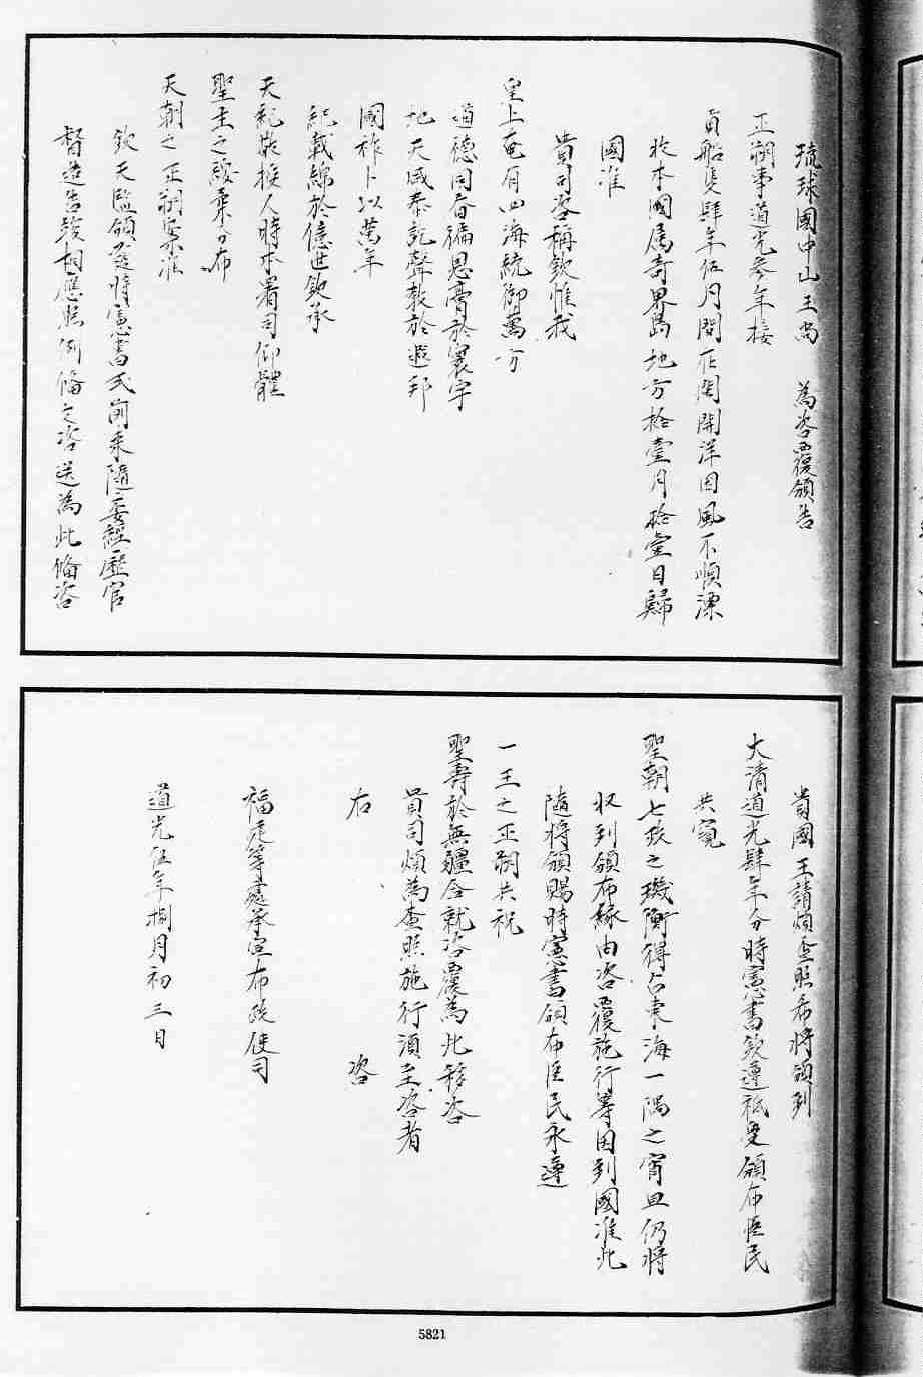 琉球國中山王尚　為咨覆頒告
正朔事道光參年接
貢船隻肆年伍月間在閩開洋因風不順漂
收本國屬奇界島地方拾壹月拾壹日歸
國准
貴司咨稱欽惟我
皇上奄有四海統御萬方
道德同春徧恩膏於寰宇
地天咸泰訖聲教於遐邦
國祚卜以萬年
紀載綿於億世欽承
天視敬授人時本署司仰體
聖主之綏柔分布
天朝之正朔案准
欽天監頒發時憲書式前來隨委經歷官
督造告竣相應照例備文咨送為此備咨
貴國王請煩查照希將頒到
大清道光肆年分時憲書欽遵祗受頒布臣民
共窺
聖朝七政之璣衡得占東海一隅之宵旦仍將
收到頒布緣由咨覆施行等因到國准此
隨將頒賜時憲書頒布臣民永遵
一王之正朔共祝
聖壽於無疆合就咨覆為此移咨
貴司煩為查照施行須至咨者
右　咨
福建等處承宣布政使司
道光伍年捌月初三日
5821